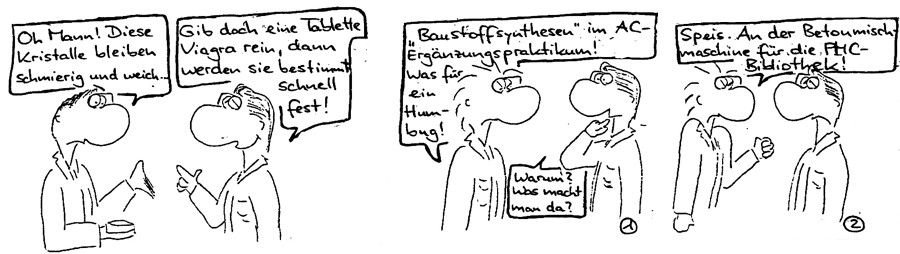 Oh Mann! Diese
Kristalle bleiben
schmierig und weich...
Gib doch eine Tablette
Viagra rein, dann
werden sie bestimmt
schnell
fest!
"Baustoffsynthesen" im AC-
Ergänzungspraktikum!
Was für
ein
Hum-
bug!
Warum?
Was macht
man da?
1
Speis. An der Betonmisch-
maschine für die FMC-
Bibliothek!
2